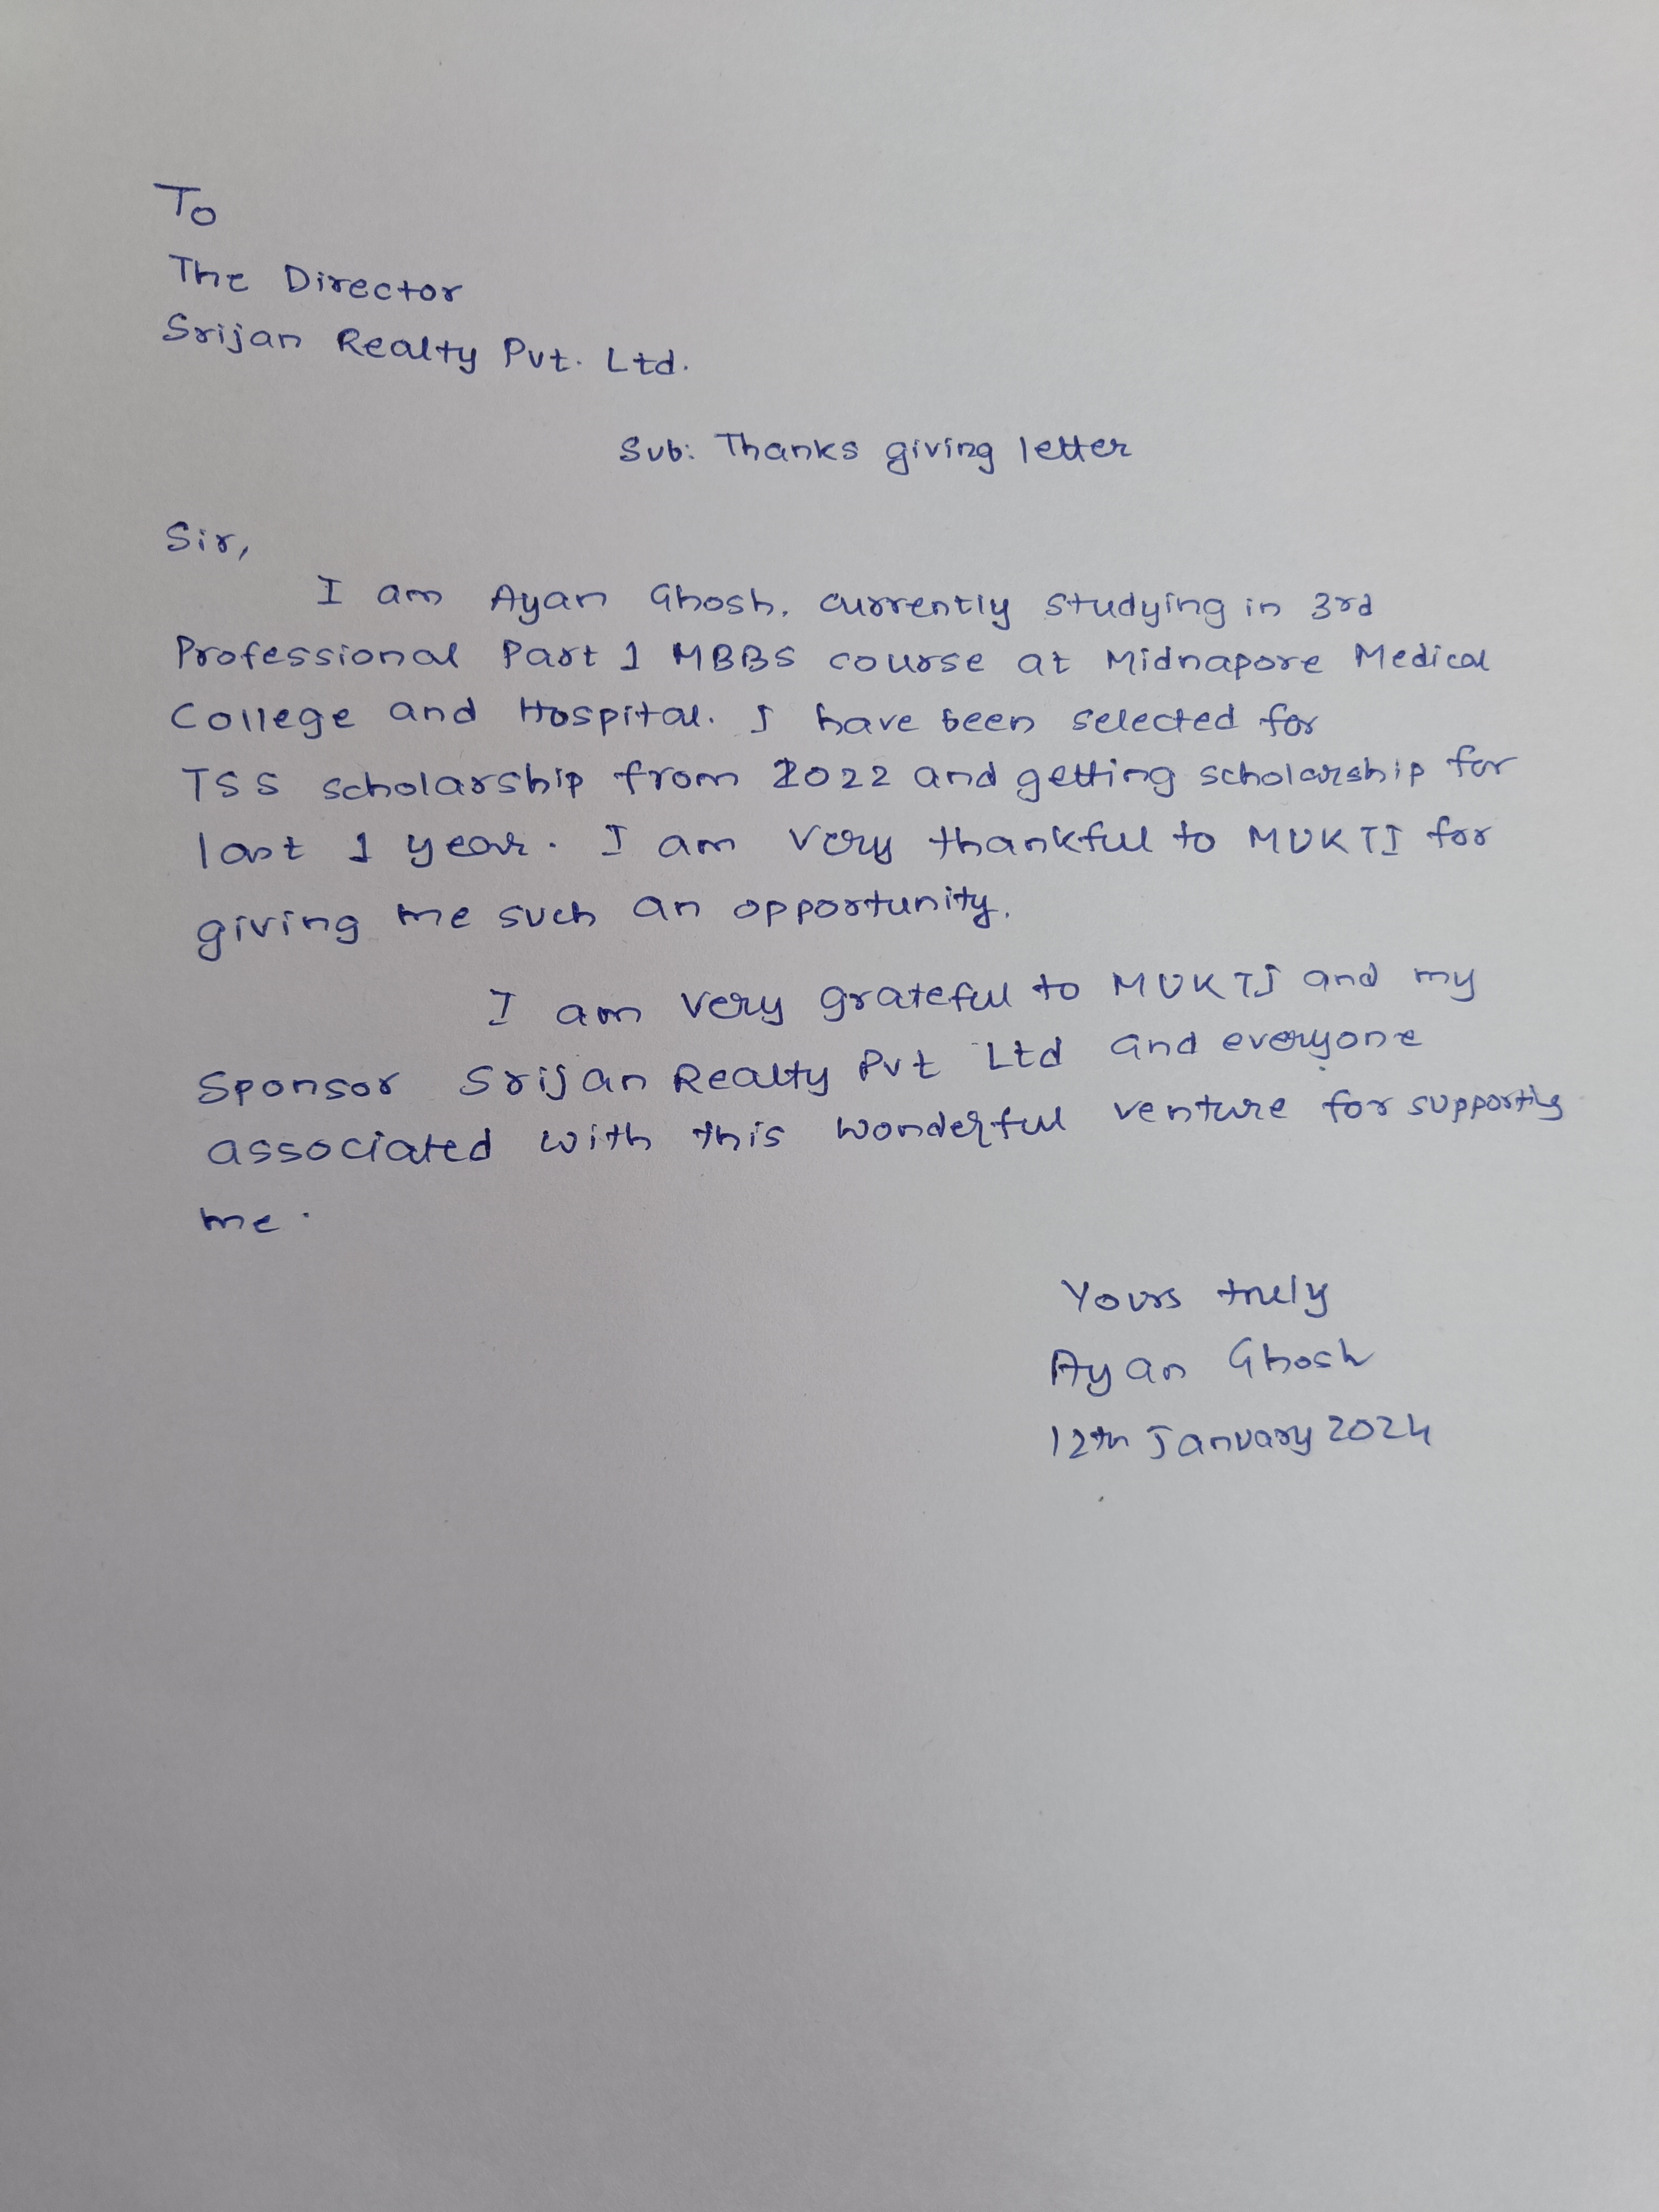 To
The Director
Srijan Realty Pvt. Ltd.
Sub: Thanks giving letter
Sir,
I am Ayan Ghosh, currently studying in 3rd
Professional Part 1 MBBS course at Midnapore Medical
College and Hospital. I have been selected for
TSS scholarship from 2022 and getting scholarship for
last 1 year. I am very thankful to MUKTI for
giving me such an opportunity.
I am very grateful to MUKTI and my
Sponsor Srijan Realty Pvt Ltd and everyone
associated with this wonderful venture for supporting
me.
Yours truly
Ayan Ghosh
12th January 2024